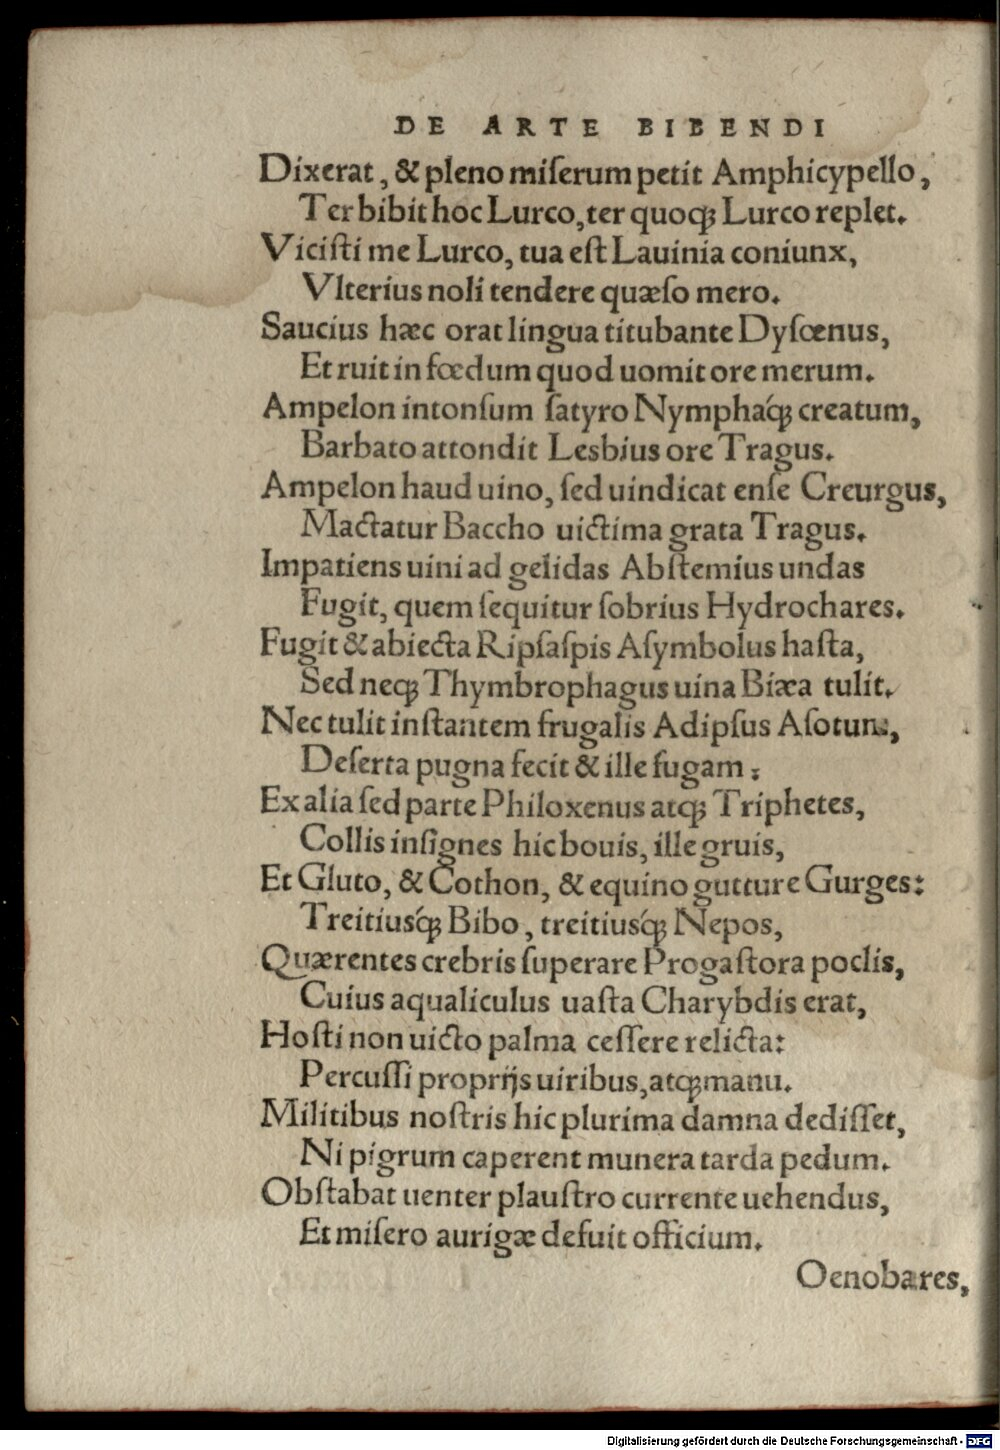 DE ARTE BIBENDI
Dixerat, & pleno miſerum petit Amphicypello,
Ter bibit hoc Lurco, ter quoqꝫ Lurco replet.
Viciſti me Lurco, tua eſt Lauinia coniunx,
Vlterius noli tendere quæſo mero.
Saucius hæc orat lingua titubante Dyſœnus,
Et ruit in fœdum quod uomit ore merum.
Ampelon intonſum ſatyro Nymphaq́ꝫ creatum,
Barbato attondit Lesbius ore Tragus.
Ampelon haud uino, ſed uindicat enſe Creurgus,
Mactatur Baccho uictima grata Tragus.
Impatiens uini ad gelidas Abſtemius undas
Fugit, quem ſequitur ſobrius Hydrochares.
Fugit & abiecta Ripſaſpis Aſymbolus haſta,
Sed neqꝫ Thymbrophagus uina Biæa tulit.
Nec tulit inſtantem frugalis Adipſus Aſotum,
Deſerta pugna fecit & ille fugam:
Ex alia ſed parte Philoxenus atqꝫ Triphetes,
Collis inſignes hic bouis, ille gruis,
Et Gluto, & Cothon, & equino gutture Gurges:
Treitiusq́ꝫ Bibo, treitiusq́ꝫ Nepos,
Quærentes crebris ſuperare Progaſtora poclis,
Cuius aqualiculus uaſta Charybdis erat,
Hoſti non uicto palma ceſſere relicta:
Percuſſi proprijs uiribus, atqꝫ manu.
Militibus noſtris hic plurima damna dediſſet,
Ni pigrum caperent munera tarda pedum.
Obſtabat uenter plauſtro currente uehendus,
Et miſero aurigæ defuit officium.
Oenobares,
Digitalisierung gefördert durch die Deutsche Forschungsgemeinschaft - DFG